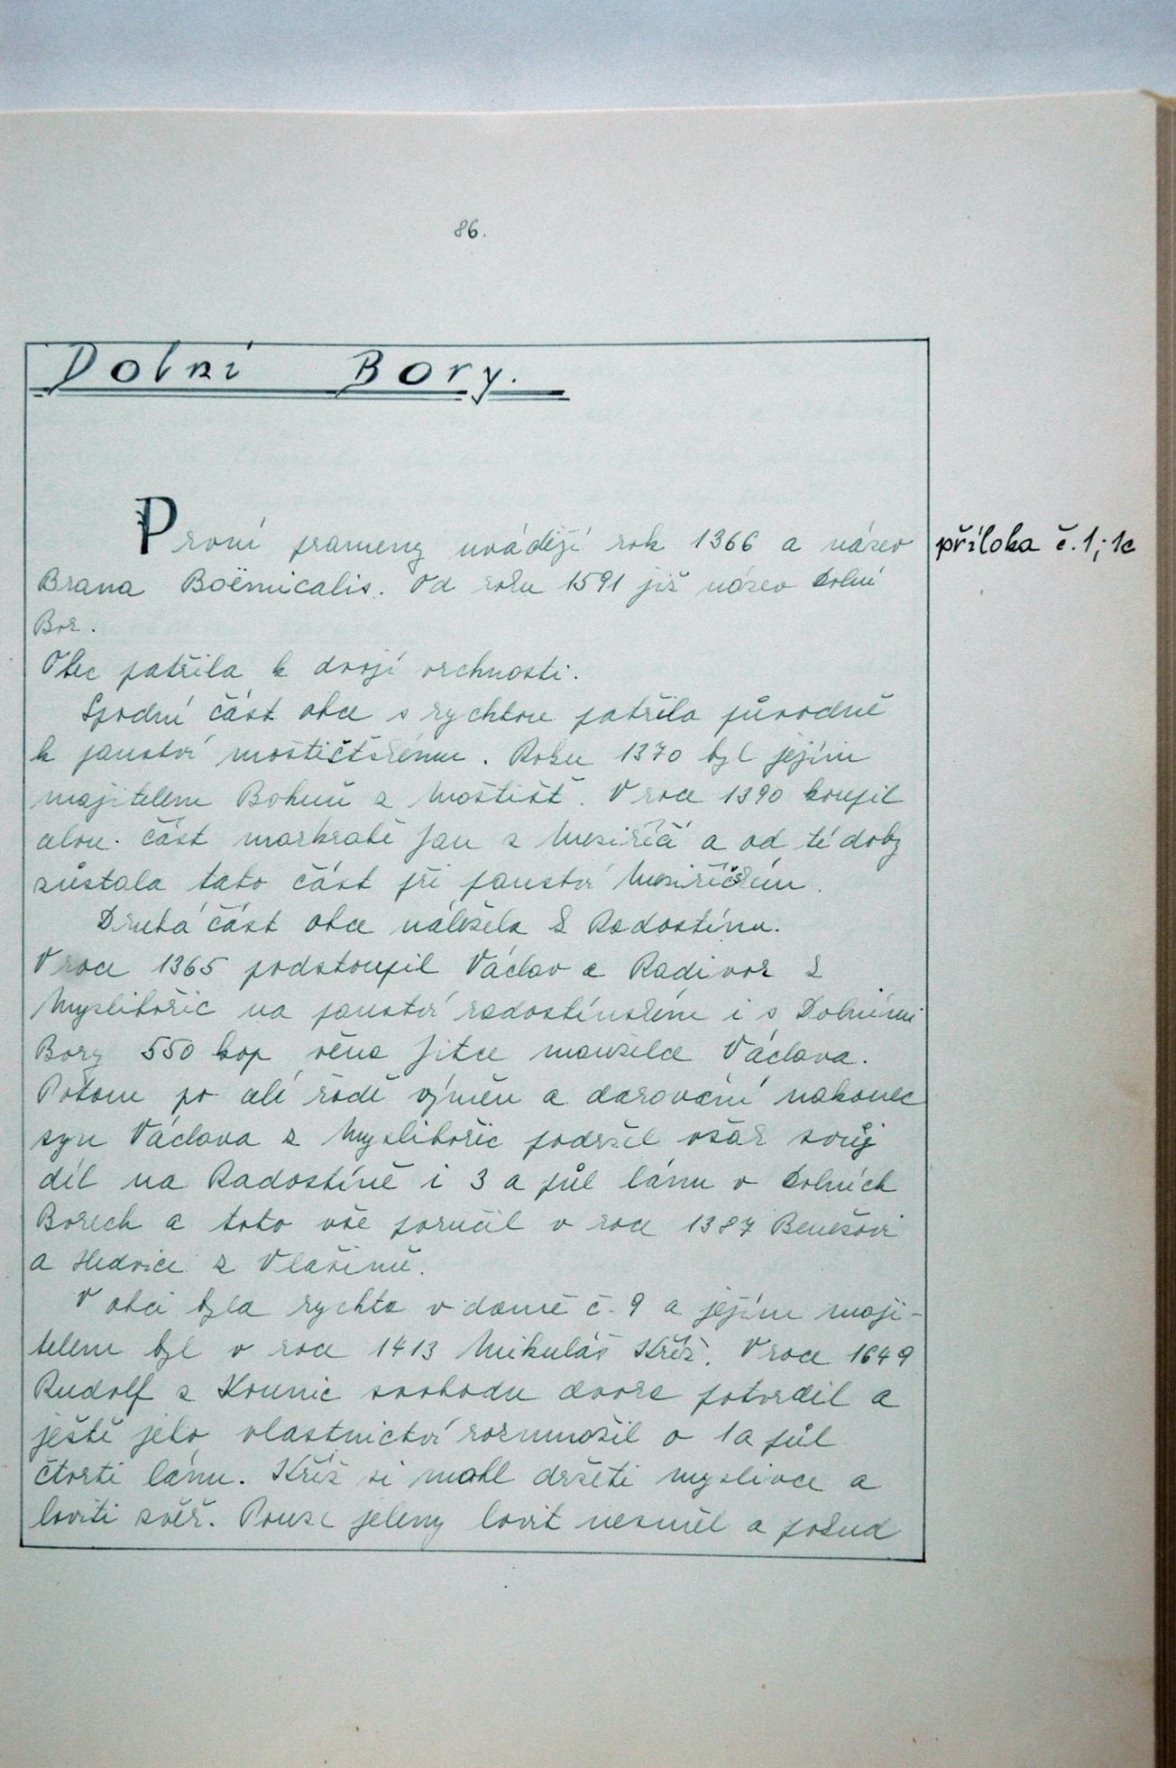 86.
Dolní Bory.
První prameny uvádějí rok 1366 a název
příloha č.1; 1a
Brana Boëmicalis. Od roku 1591 již název Dolní
Bor.
Obec patřila k dvojí vrchnosti.
Spodní část obce s rychtou patřila původně
k panství mostišťskému. Roku 1370 byl jejím
majitelem Bohuš z Moštišť. V roce 1390 koupil
část markrabě Jan z Meziříčí a od té doby
zůstala tato část při panství Meziříčském.
Druhá část obce náležela k Radostínu.
V roce 1365 podstoupil Václav a Radivor z
Myslibořic na panství radostínském i s Dolními
Bory 550 kop věna Jitce manželce Václava.
Potom po celé řadě výměn a darování nakonec
syn Václava z Myslibořic podržel svůj
díl na Radostíně i 3 a půl lánu v Dolních
Borech a toto vše poručil v roce 1387 Benešovi
a Hedvice z Vlašimě.
V obci byla rychta v domě č. 9 a jejím maji-
telem byl v roce 1413 Mikuláš Kříž. V roce 1649
Rudolf z Kounic svobodu dvora potvrdil a
ještě jeho vlastnictví rozmnožil o 1 a půl
čtvrti lánu. Kříž si mohl držeti myslivce a
loviti zvěř. Pouze jeleny lovit nesměl a pokud